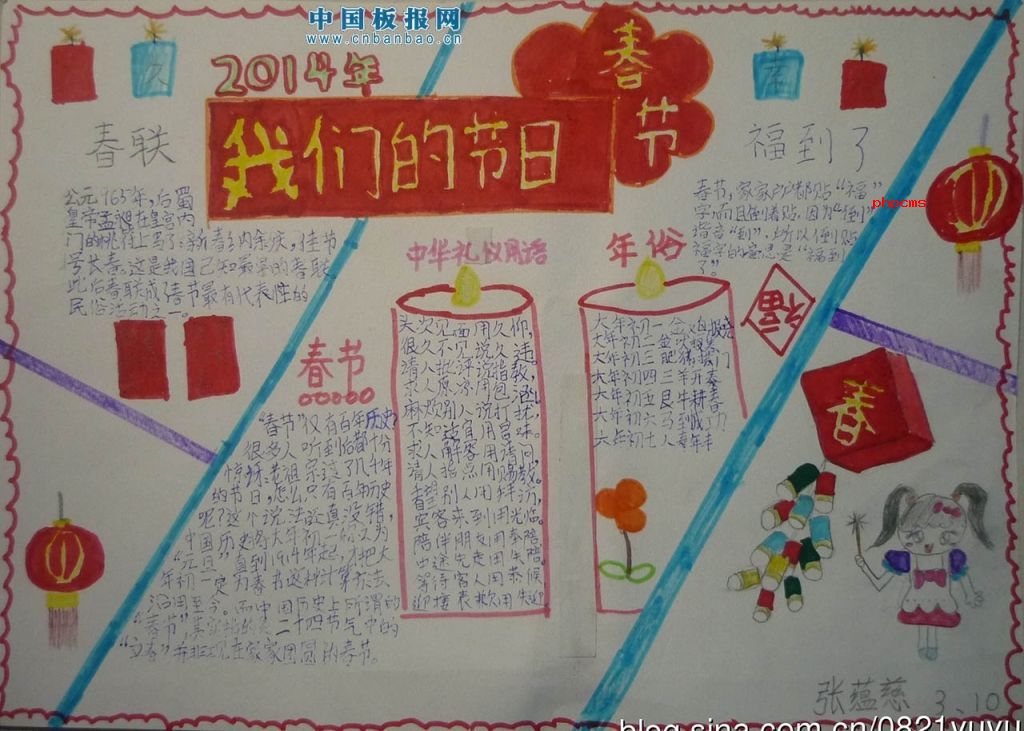 中国板报网
www.cnbanbao.cn
2014年
我们的节日
春节
春联
公元965年,后蜀
皇帝孟昶在皇宫内
门的桃符上写:新春纳余庆,佳节
号长春。这是我国已知最早的春联
此后春联成了春节最有代表性的
民俗活动之一。
福到了
春节,家家户户都贴“福”
字,而且倒着贴,因为“倒”
谐音“到”,所以倒贴
福字的寓意是“福到
了”。
phpcms
春节
“春节”仅有百年历史?
很多人听到后都十分
惊讶:老祖宗过了几千年
的节日,怎么只有百年历史
呢?这个说法的真没错,
中国历史的大年初一称之为
“元旦”直到1914年起,才把大
年初一定为春节这种计算标志
沿用至今。而中国历史上所谓的
“春节”其实指的是二十四节气中的
“立春”并非现在家家团圆的春节。
中华礼仪用语
头次见面用久仰,
很久不见说久违。
请人批评说指教,
求人原凉用包涵。
麻烦别人说打扰,
不知适宜用冒昧。
求人解答用请问,
请人指点用赐教。
看望别人用拜访,
宾客来到用光临。
陪伴朋友用奉陪
中途先走用失陪
等待客人用恭候
迎接表歉用失迎
年俗
大年初一
大年初二
大年初三肥猪拱门
大年初四三羊开泰
大年初五艮牛耕春
大年初六马到成功
大年初七人寿年丰
福
春
张蕴慈 3.10
blog.sina.com.cn/0821yuyu